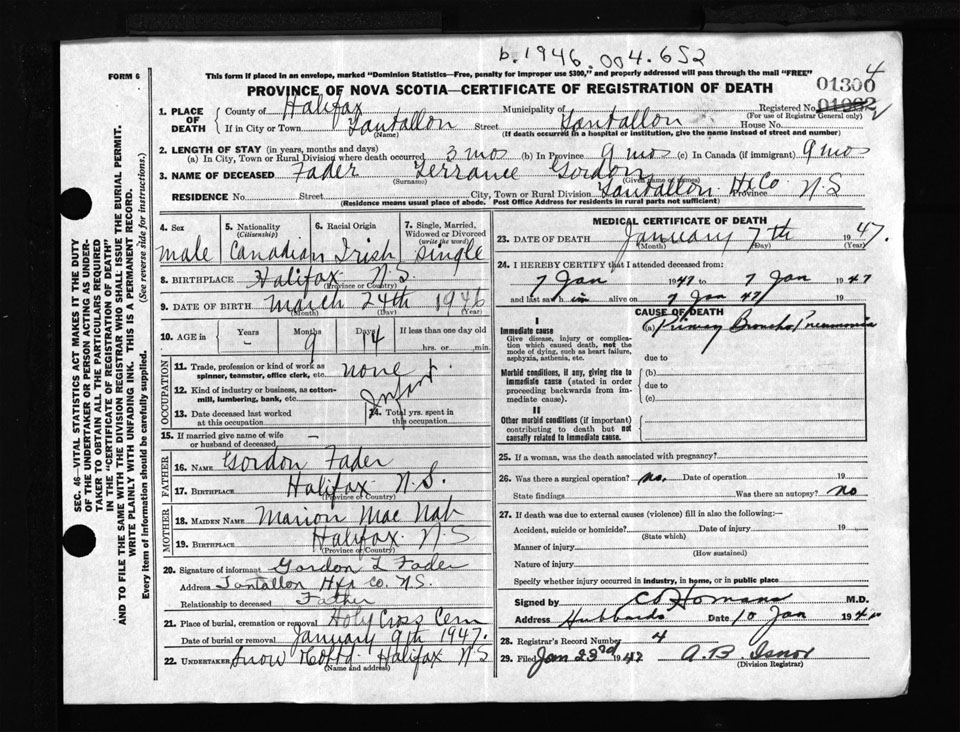 b.1946.004.652
FORM 6
This form if placed in an envelope, marked "Dominion Statistics—Free, penalty for improper use $300," and properly addressed will pass through the mail "FREE"
PROVINCE OF NOVA SCOTIA—CERTIFICATE OF REGISTRATION OF DEATH
013004
1. PLACE OF DEATH
County of Halifax
Municipality of Tantallon
Registered No.
(For use of Registrar General only)
If in City or Town Tantallon Street House No.
(Name) (If death occurred in a hospital or institution, give the name instead of street and number)
2. LENGTH OF STAY (in years, months and days)
(a) In City, Town or Rural Division where death occurred 3 mos (b) In Province 9 mos (c) In Canada (if immigrant) 9 mos
3. NAME OF DECEASED Fader Terrance Gordon
(Surname) (Given name or names)
RESIDENCE No. Street City, Town or Rural Division Tantallon Hx Co. Province N S
(Residence means usual place of abode. Post Office Address for residents in rural parts not sufficient)
4. Sex male
5. Nationality (Citizenship) Canadian
6. Racial Origin Irish
7. Single, Married, Widowed or Divorced (write the word) single
8. BIRTHPLACE Halifax N.S.
(Province or Country)
9. DATE OF BIRTH March 24th 1946
(Month) (Day) (Year)
10. AGE in Years - Months 9 Days 14 If less than one day old
hrs. or min.
OCCUPATION
11. Trade, profession or kind of work as spinner, teamster, office clerk, etc. none
12. Kind of industry or business, as cotton-mill, lumbering, bank, etc. Infant
13. Date deceased last worked at this occupation
14. Total yrs. spent in this occupation
15. If married give name of wife or husband of deceased —
FATHER
16. NAME Gordon Fader
17. BIRTHPLACE Halifax N.S.
(Province or Country)
MOTHER
18. MAIDEN NAME Marion Mac Nab
19. BIRTHPLACE Halifax N.S
(Province or Country)
20. Signature of informant Gordon L Fader
Address Tantallon Hfx Co. N.S.
Relationship to deceased Father
21. Place of burial, cremation or removal Holy Cross Cem
Date of burial or removal January 9th 1947.
22. UNDERTAKER Snow & Co Ltd Halifax N S
(Name and address)
MEDICAL CERTIFICATE OF DEATH
23. DATE OF DEATH January 7th 1947.
(Month) (Day) (Year)
24. I HEREBY CERTIFY that I attended deceased from:
7 Jan 1947 to 7 Jan 1947
and last saw him alive on 7 Jan 47 19
CAUSE OF DEATH
I
Immediate cause
Give disease, injury or complication which caused death, not the mode of dying, such as heart failure, asphyxia, asthenia, etc.
(a) Primary Broncho Pneumonia
due to
Morbid conditions, if any, giving rise to immediate cause (stated in order proceeding backwards from immediate cause).
(b)
due to
(c)
II
Other morbid conditions (if important) contributing to death but not causally related to immediate cause.
25. If a woman, was the death associated with pregnancy?
26. Was there a surgical operation? no. Date of operation 19
State findings Was there an autopsy? no
27. If death was due to external causes (violence) fill in also the following:—
Accident, suicide or homicide? Date of injury 19
(State which)
Manner of injury
(How sustained)
Nature of injury
Specify whether injury occurred in industry, in home, or in public place
Signed by C D Homans M.D.
Address Hubbards Date 10 Jan 194
28. Registrar's Record Number 4
29. Filed Jan 23rd 1947 A. B Isnor
(Division Registrar)
SEC. 46—VITAL STATISTICS ACT MAKES IT THE DUTY
OF THE UNDERTAKER OR PERSON ACTING AS UNDER-
TAKER TO OBTAIN ALL THE PARTICULARS REQUIRED
IN THE "CERTIFICATE OF REGISTRATION OF DEATH"
AND TO FILE THE SAME WITH THE DIVISION REGISTRAR WHO SHALL ISSUE THE BURIAL PERMIT.
WRITE PLAINLY WITH UNFADING INK. THIS IS A PERMANENT RECORD.
Every item of information should be carefully supplied. (See reverse side for instructions.)